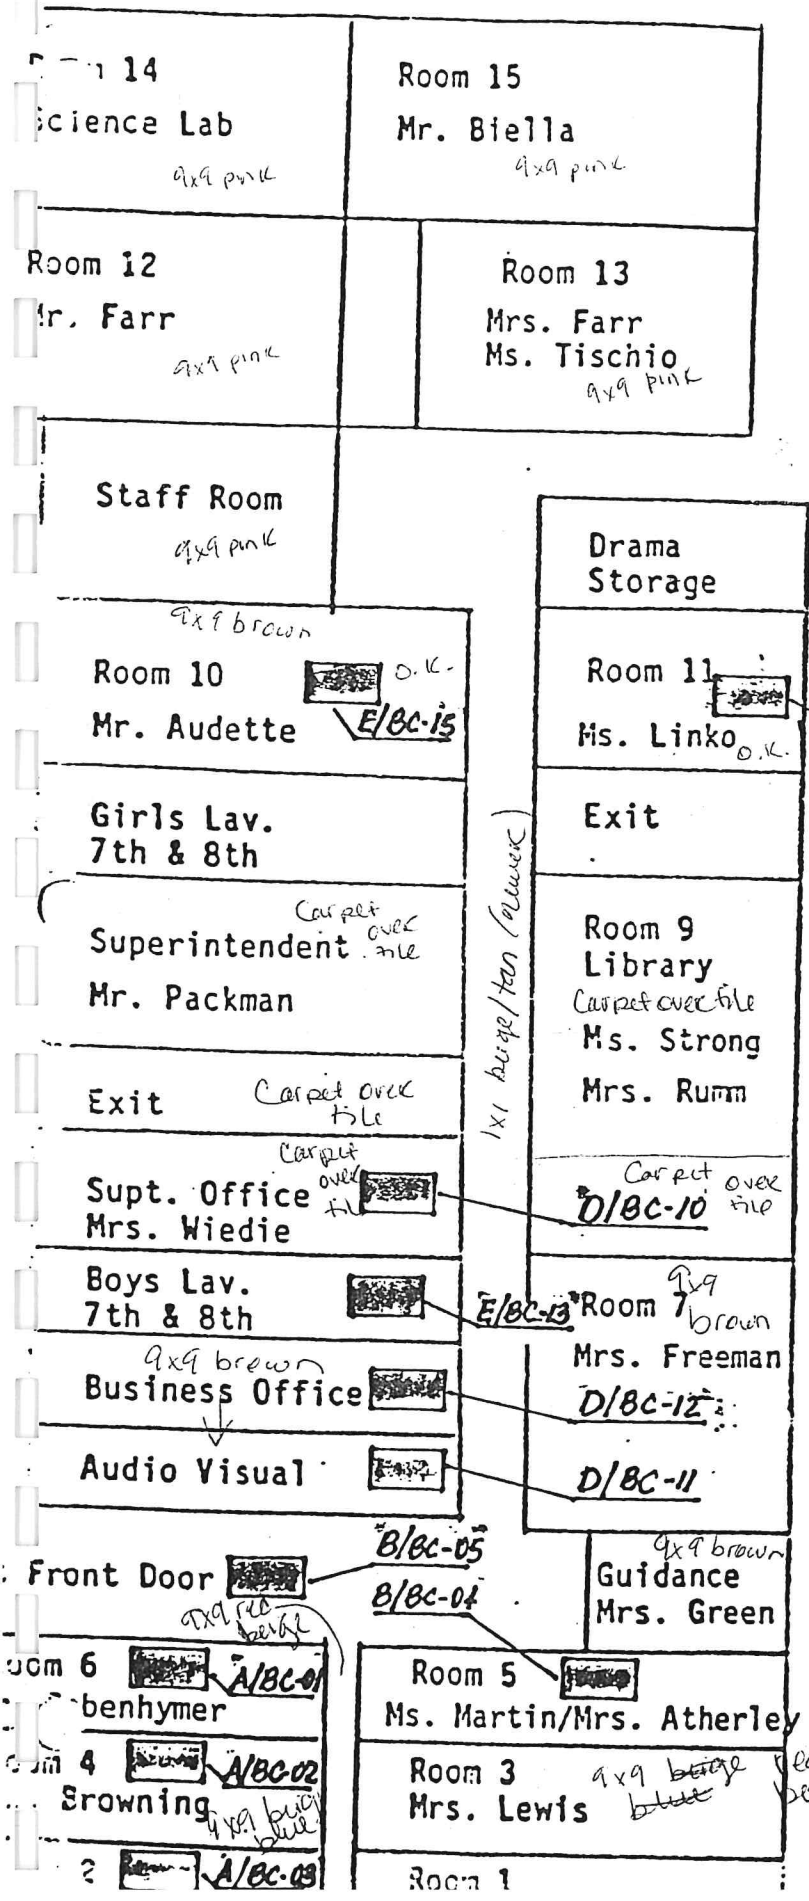 14
Science Lab
9x9 pink
Room 15
Mr. Biella
9x9 pink
Room 12
Mr. Farr
9x9 pink
Room 13
Mrs. Farr
Ms. Tischio
9x9 pink
Staff Room
9x9 pink
Drama
Storage
9x9 brown
Room 10
O.K.
Mr. Audette
E/BC-15
Room 11
Ms. Linko
O.K.
Girls Lav.
7th & 8th
Exit
Carpet
over
tile
Superintendent
Mr. Packman
1x1 beige/tan
Room 9
Library
Carpet over tile
Ms. Strong
Mrs. Rumm
Exit
Carpet over
tile
Carpet
over
tile
Supt. Office
Mrs. Wiedie
Carpet over
tile
D/BC-10
Boys Lav.
7th & 8th
E/BC-13
Room 7
9x9
brown
Mrs. Freeman
9x9 brown
Business Office
D/BC-12
Audio Visual
D/BC-11
B/BC-05
Front Door
B/BC-04
9x9 brown
Guidance
Mrs. Green
9x9 red
beige
6
A/BC-01
benhymer
Room 5
Ms. Martin/Mrs. Atherley
4
A/BC-02
Browning
9x9 beige
blue
Room 3
Mrs. Lewis
9x9 beige
blue
2
A/BC-03
Room 1